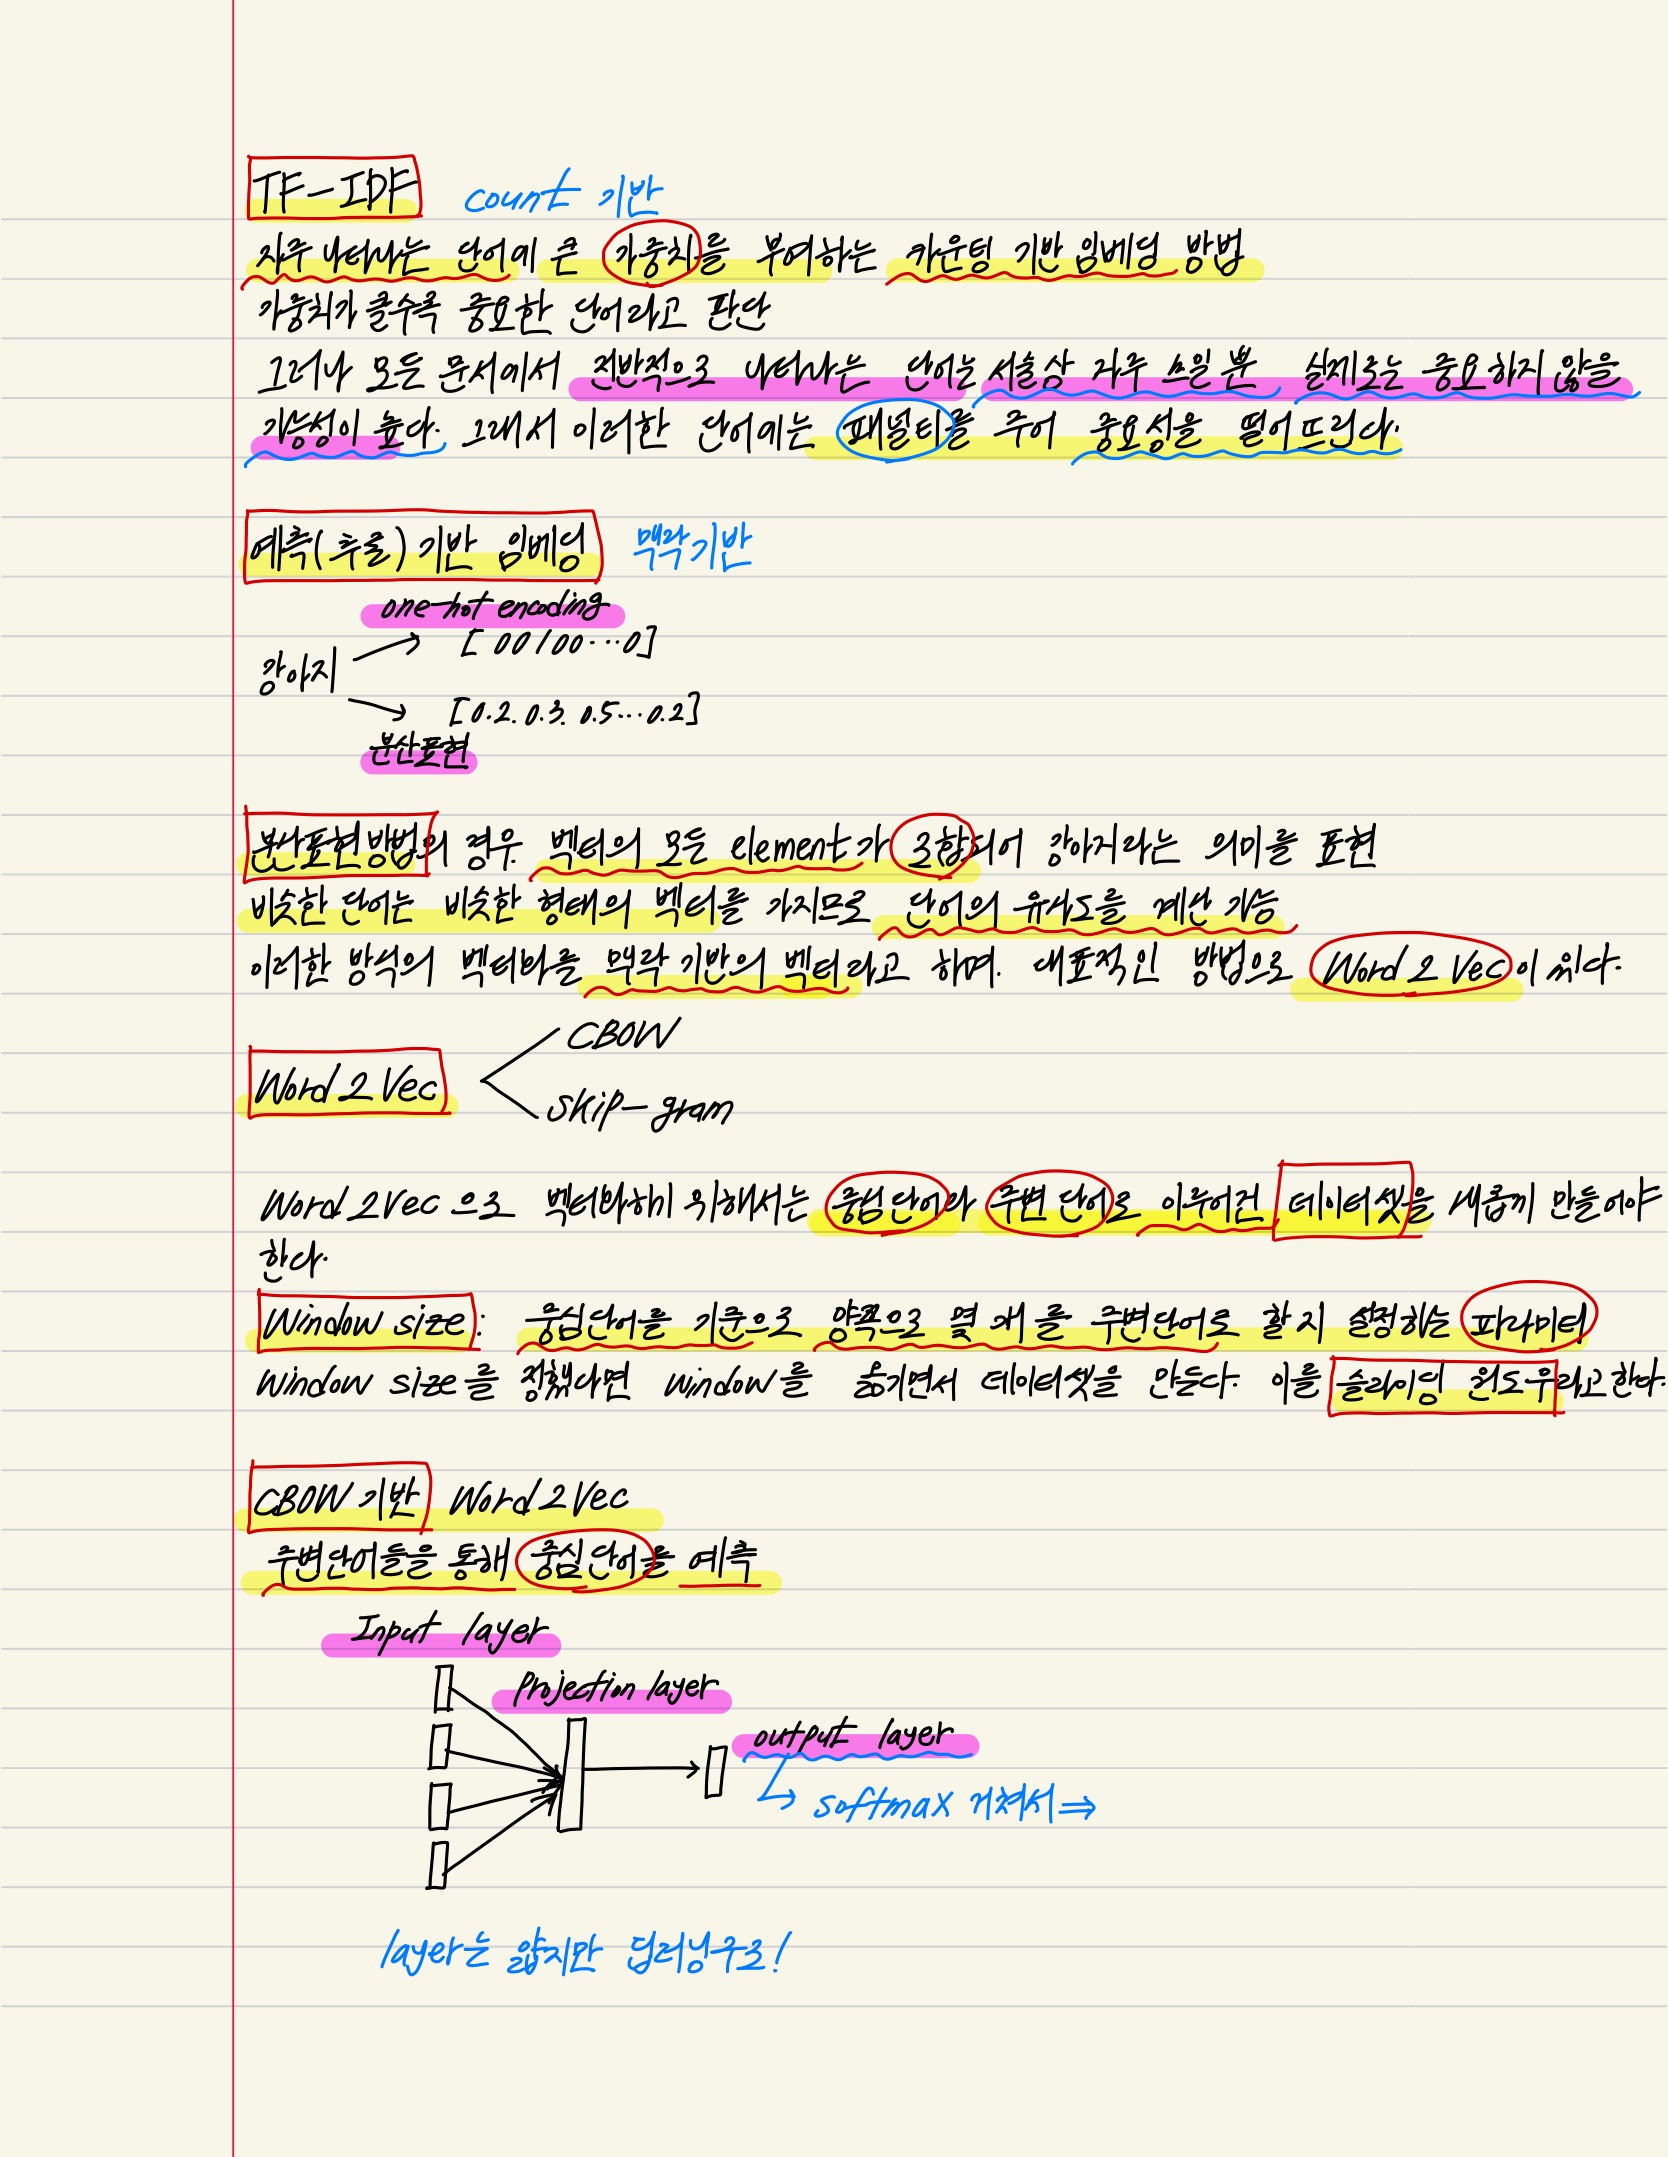 TF-IDF count 기반
자주 나타나는 단어에 큰 가중치를 부여하는 카운팅 기반 임베딩 방법
가중치가 클수록 중요한 단어라고 판단
그러나 모든 문서에서 전반적으로 나타나는 단어는 서술상 자주 쓰일 뿐 실제로는 중요하지 않을
가능성이 높다. 그래서 이러한 단어에는 패널티를 주어 중요성을 떨어뜨린다.
예측(추론)기반 임베딩 맥락기반
one-hot encoding
[00100...0]
강아지
[0.2. 0.3. 0.5...0.2]
분산표현
분산표현방법의 경우 벡터의 모든 element가 조합되어 강아지라는 의미를 표현
비슷한 단어는 비슷한 형태의 벡터를 가지므로 단어의 유사도를 계산 가능
이러한 방식의 벡터화를 맥락 기반의 벡터라고 하며. 대표적인 방법으로 Word2Vec이 있다.
CBOW
Word2Vec
skip-gram
Word2Vec으로 벡터화하기 위해서는 중심단어와 주변 단어로 이루어진 데이터셋을 새롭게 만들어야
한다.
Window size: 중심단어를 기준으로 양쪽으로 몇 개를 주변단어로 할 지 설정하는 파라미터
window size를 정했다면 window를 옮기면서 데이터셋을 만든다. 이를 슬라이딩 윈도우라고한다.
CBOW 기반 Word2Vec
주변단어들을 통해 중심단어를 예측
Input layer
Projection layer
output layer
softmax 거쳐서⇒
layer는 얇지만 딥러닝구조!